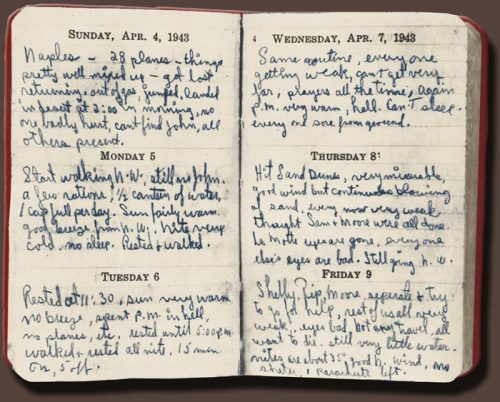 SUNDAY, APR. 4, 1943
Naples - 28 planes - things
pretty well mixed up - got lost
returning, out of gas, jumped, landed
in desert at 2:00 in morning, no
one badly hurt, cant find John, all
others present.
MONDAY 5
Start walking N.W., still no John.
a few rations, 1/2 canteen of water,
1 cap full per day. Sun fairly warm.
good breeze from N.W. Nite very
cold. no sleep. Rested & walked.
TUESDAY 6
Rested at 11:30, sun very warm
no breeze, spent P.M. in hell,
no planes, etc. rested until 5:00 P.M.
walked & rested all nite, 15 min.
on, 5 off.
4 WEDNESDAY, APR. 7, 1943
Same routine, every one
getting weak, cant get very
far, prayers all the time, again
P.M. very warm, hell. Can't sleep.
every one sore from ground.
THURSDAY 8
Hit Sand Dunes, very miserable,
good wind but continuous blowing
of sand, every now very weak
thought Sam & Moore were all done.
La Motte eyes are gone, every one
else's eyes are bad. Still going N.W.
FRIDAY 9
Shelly, Rip, Moore, seperate & try
to go for help, rest of us all very
weak, eyes bad, Not any travel, all
want to die. still very little water.
nites are about 35° good N. wind, no
shelter, 1 Parachute left.